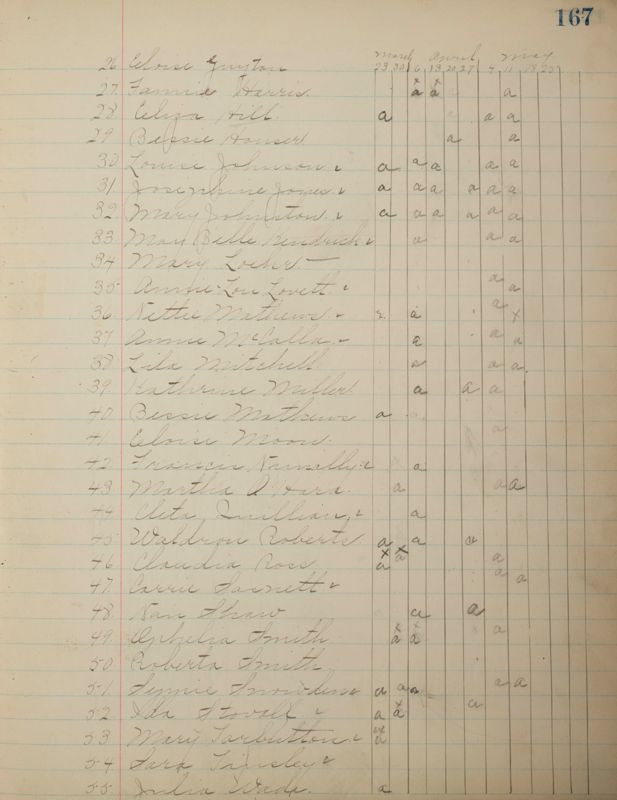 167
March April May
23 30 6 13 20 27 4 11 18 25
26 Eloise Guyton
27 Fannie Harris a a a
28 Eliza Hill a a a
29 Bessie Houser a a
30 Louise Johnson a a a a a
31 Josephine Jones a a a a a a
32 Mary Johnston a a a a a a
33 May Belle Kendrick a a a
34 Mary Loehr
35 Annie Lou Lovett a a
36 Nettie Mathews a a x
37 Annie McCalla a a a
38 Lila Mitchell a a a
39 Katherine Miller a a a
40 Bessie Mathews a
41 Eloise Moon a
42 Francis Nunnally a
43 Martha O'Hara a a a
44 Cleta Quillian a
45 Waldron Roberts a a a
46 Claudia Ross a a a
47 Carrie a a
48 Nan Shaw a a
49 Ophelia Smith a a a
50 Roberta Smith
51 Snowden a a a a a
52 Ida Stovall a a a
53 Mary Tarbutton a
54 Sara Tinsley
55 Julia Wade a